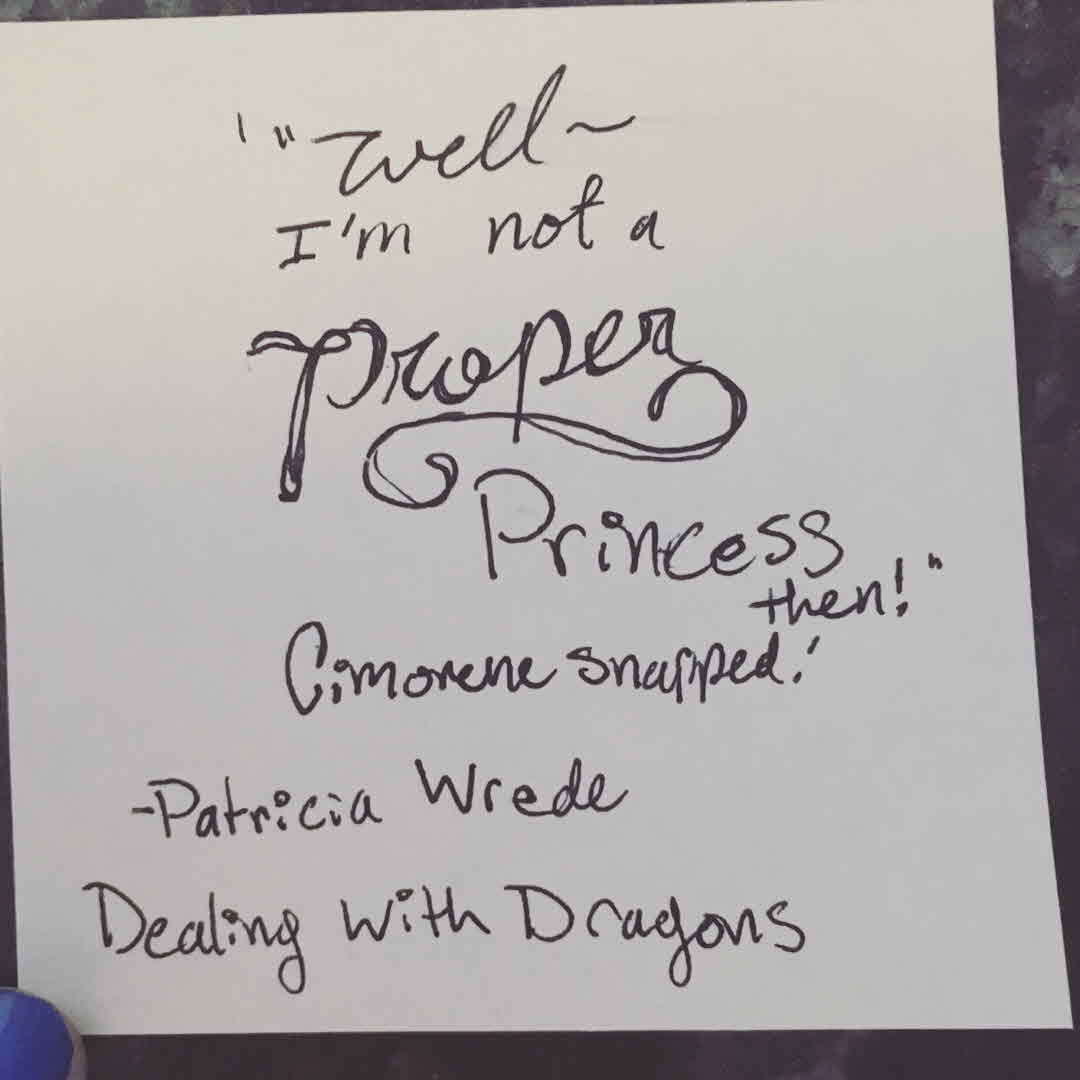 '"Well~
I'm not a
Proper
Princess
then!"
Cimorene snapped.'
-Patricia Wrede
Dealing with Dragons